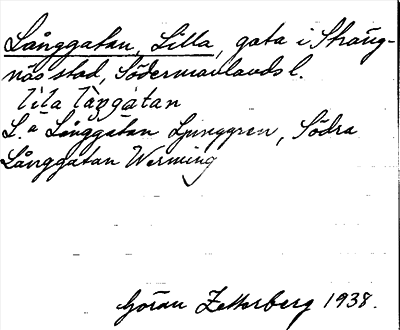 Långgatan, Lilla, gata i Sträng-
näs stad, Södermanlands l.
lìla låŋgátan
L.a Långgatan Ljunggren, Södra
Långgatan Werming
Göran Zetterberg 1938.